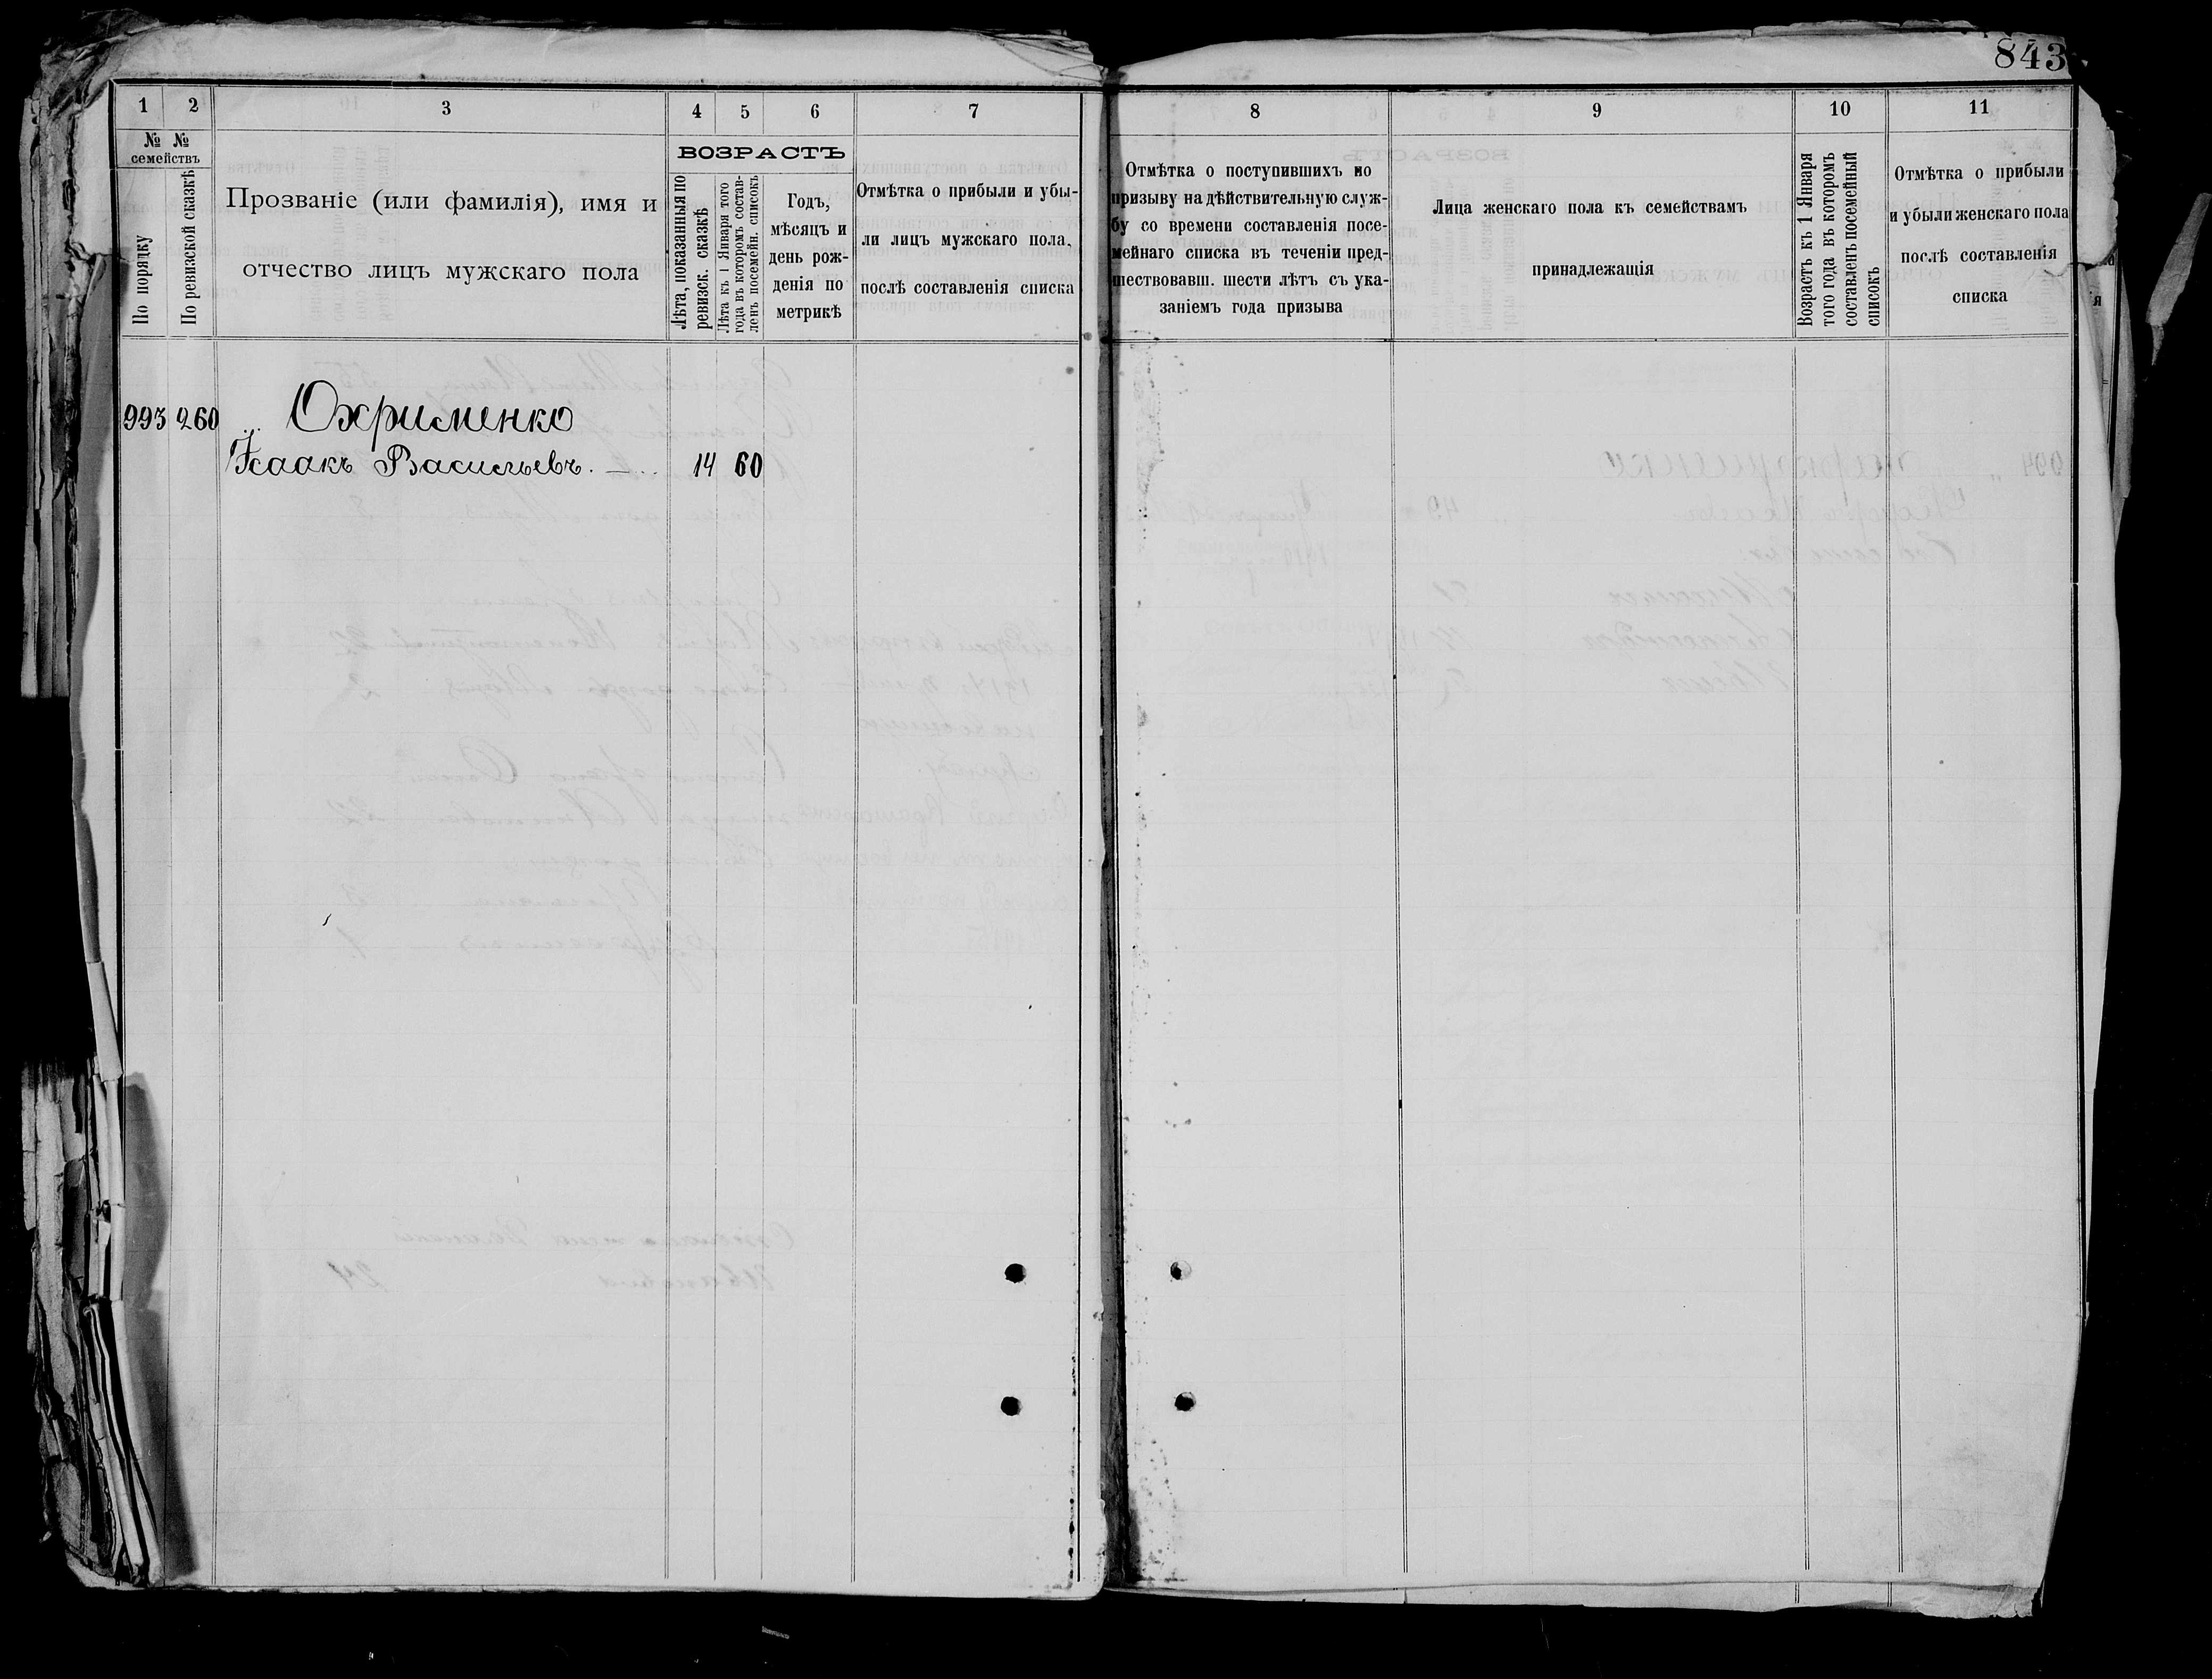 843
1 2 3 4 5 6 7
№ №
семействъ
По порядку
По ревизской сказкѣ
Прозваніе (или фамилія), имя и
отчество лицъ мужскаго пола
ВОЗРАСТЪ
Лѣта, показанныя по
ревизск. сказкѣ
Лѣта къ 1 Января того
года въ которомъ состав-
ленъ посемейн. списокъ
Годъ,
мѣсяцъ и
день рож-
денія по
метрикѣ
Отмѣтка о прибыли и убы-
ли лицъ мужскаго пола,
послѣ составленія списка
8 9 10 11
Отмѣтка о поступившихъ по
призыву на дѣйствительную служ-
бу со времени составленія посе-
мейнаго списка въ теченіи пред-
шествовавш. шести лѣтъ съ ука-
заніемъ года призыва
Лица женскаго пола къ семействамъ
принадлежащія
Возрастъ къ 1 Января
того года въ которомъ
составленъ посемейный
списокъ
Отмѣтка о прибыли
и убыли женскаго пола
послѣ составленія
списка
993 260 Охрименко
Исаакъ Васильевъ. 14 60